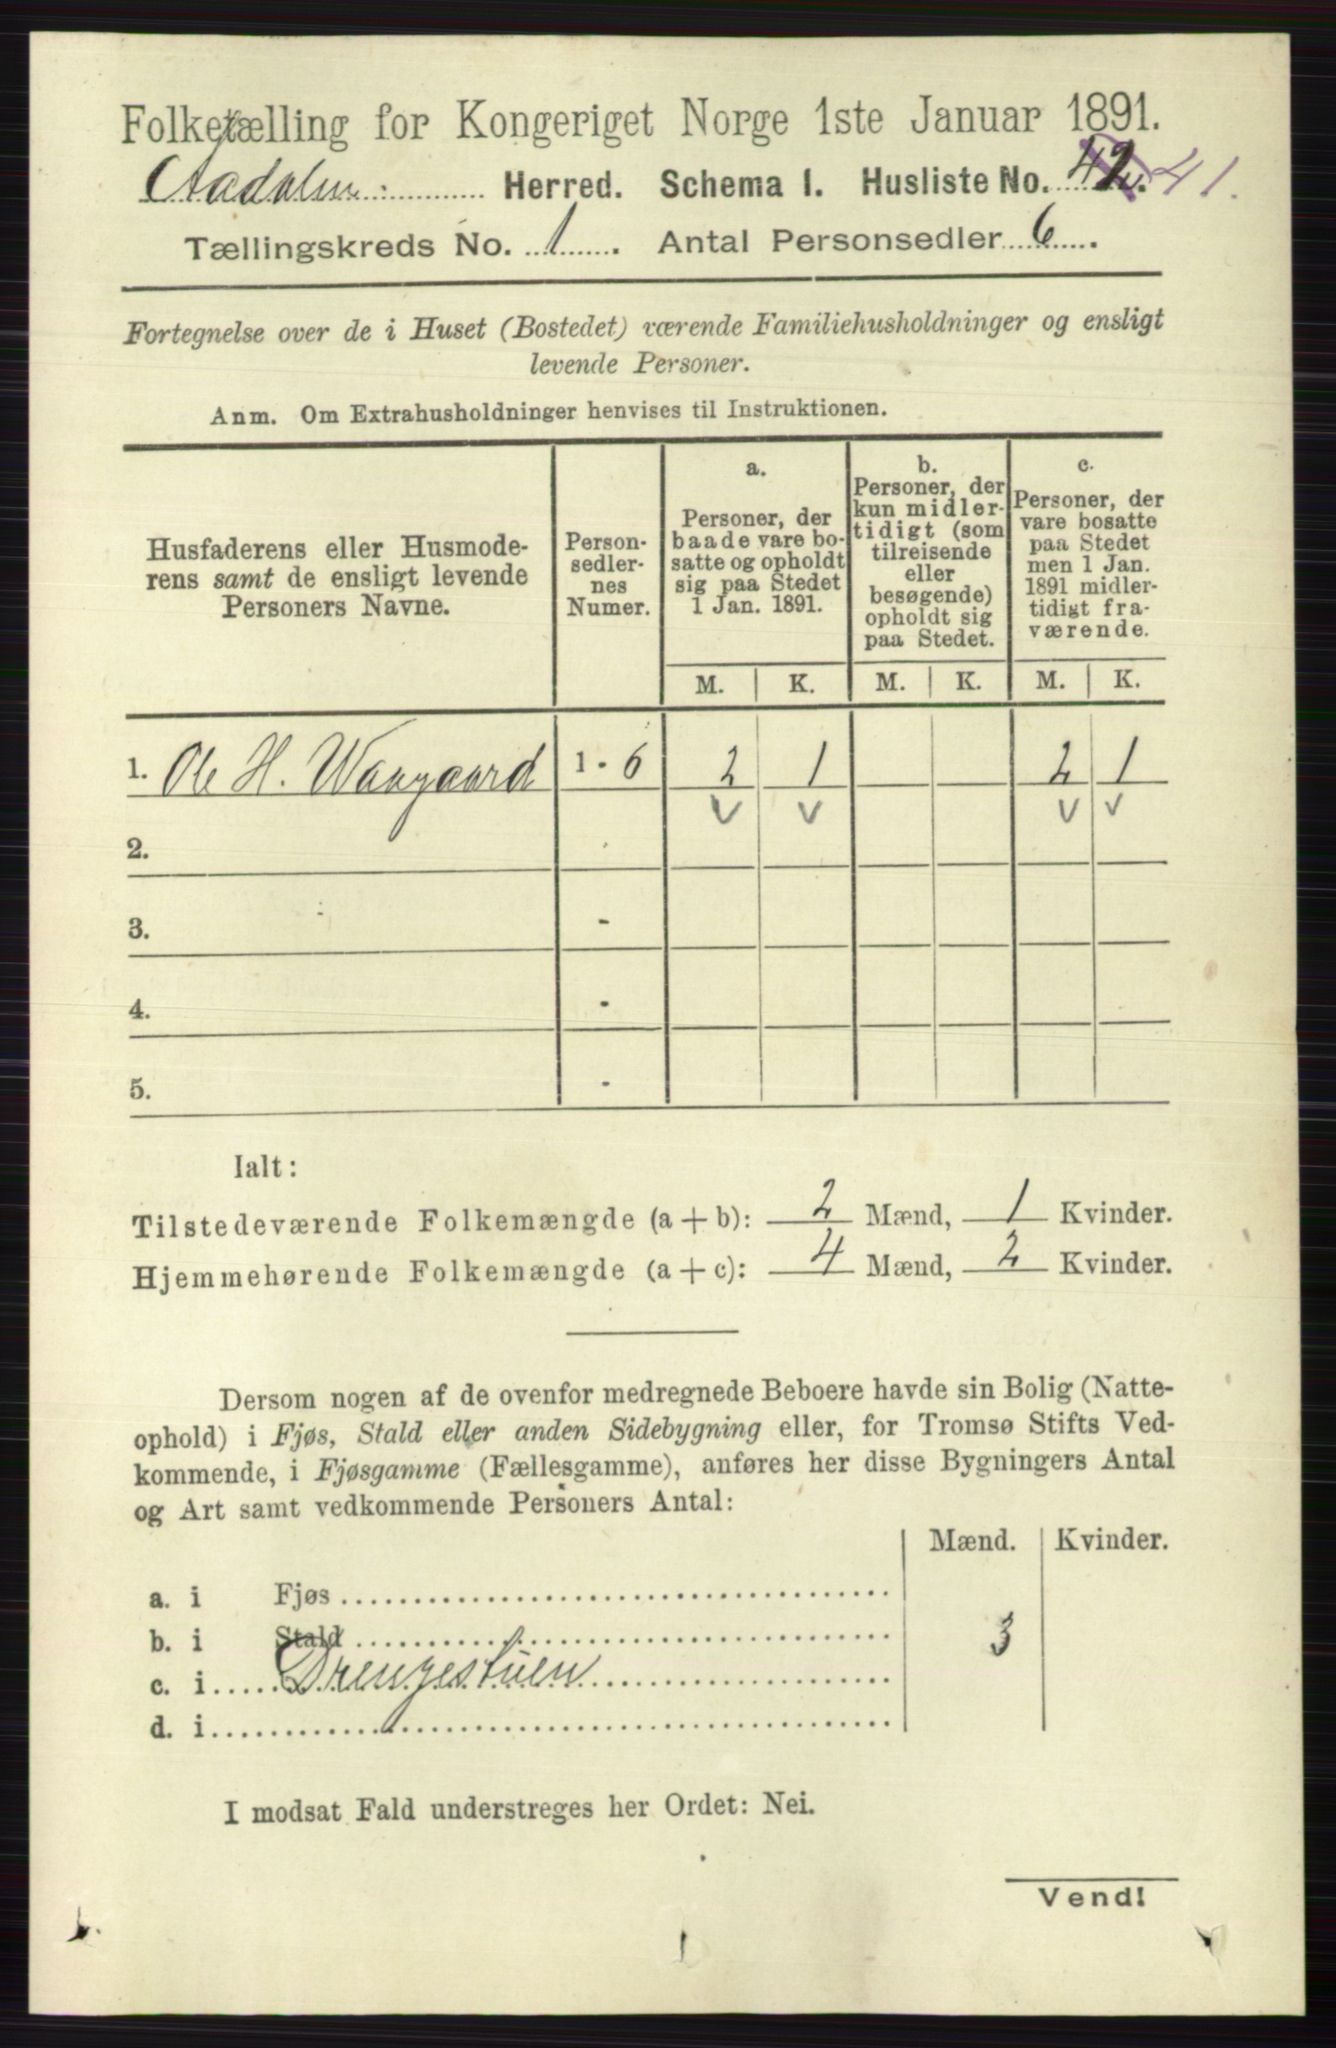 Folketælling for Kongeriget Norge 1ste Januar 1891.
Aadalen Herred. Schema I. Husliste No. 42. 41.
Tællingskreds No. 1. Antal Personsedler 6.
Fortegnelse over de i Huset (Bostedet) værende Familiehusholdninger og ensligt
levende Personer.
Anm. Om Extrahusholdninger henvises til Instruktionen.
Husfaderens eller Husmode-
rens samt de ensligt levende
Personers Navne.
Person-
sedler-
nes
Numer.
a.
Personer, der
baade vare bo-
satte og opholdt
sig paa Stedet
1 Jan. 1891.
b.
Personer, der
kun midler-
tidigt (som
tilreisende
eller
besøgende)
opholdt sig
paa Stedet.
c.
Personer, der
vare bosatte
paa Stedet
men 1 Jan.
1891 midler-
tidigt fra-
værende.
M. K. M. K. M. K.
1. Ole H. Waagaard 1 - 6 2 1 2 1
2.
3. -
4. -
5. -
Ialt:
Tilstedeværende Folkemængde (a + b): 2 Mænd, 1 Kvinder.
Hjemmehørende Folkemængde (a + c): 4 Mænd, 2 Kvinder.
Dersom nogen af de ovenfor medregnede Beboere havde sin Bolig (Natte-
ophold) i Fjøs, Stald eller anden Sidebygning eller, for Tromsø Stifts Ved-
kommende, i Fjøsgamme (Fællesgamme), anføres her disse Bygningers Antal
og Art samt vedkommende Personers Antal:
Mænd. Kvinder.
a. i Fjøs
b. i Stald 3
c. i Drengestuen
d. i
I modsat Fald understreges her Ordet: Nei.
Vend!